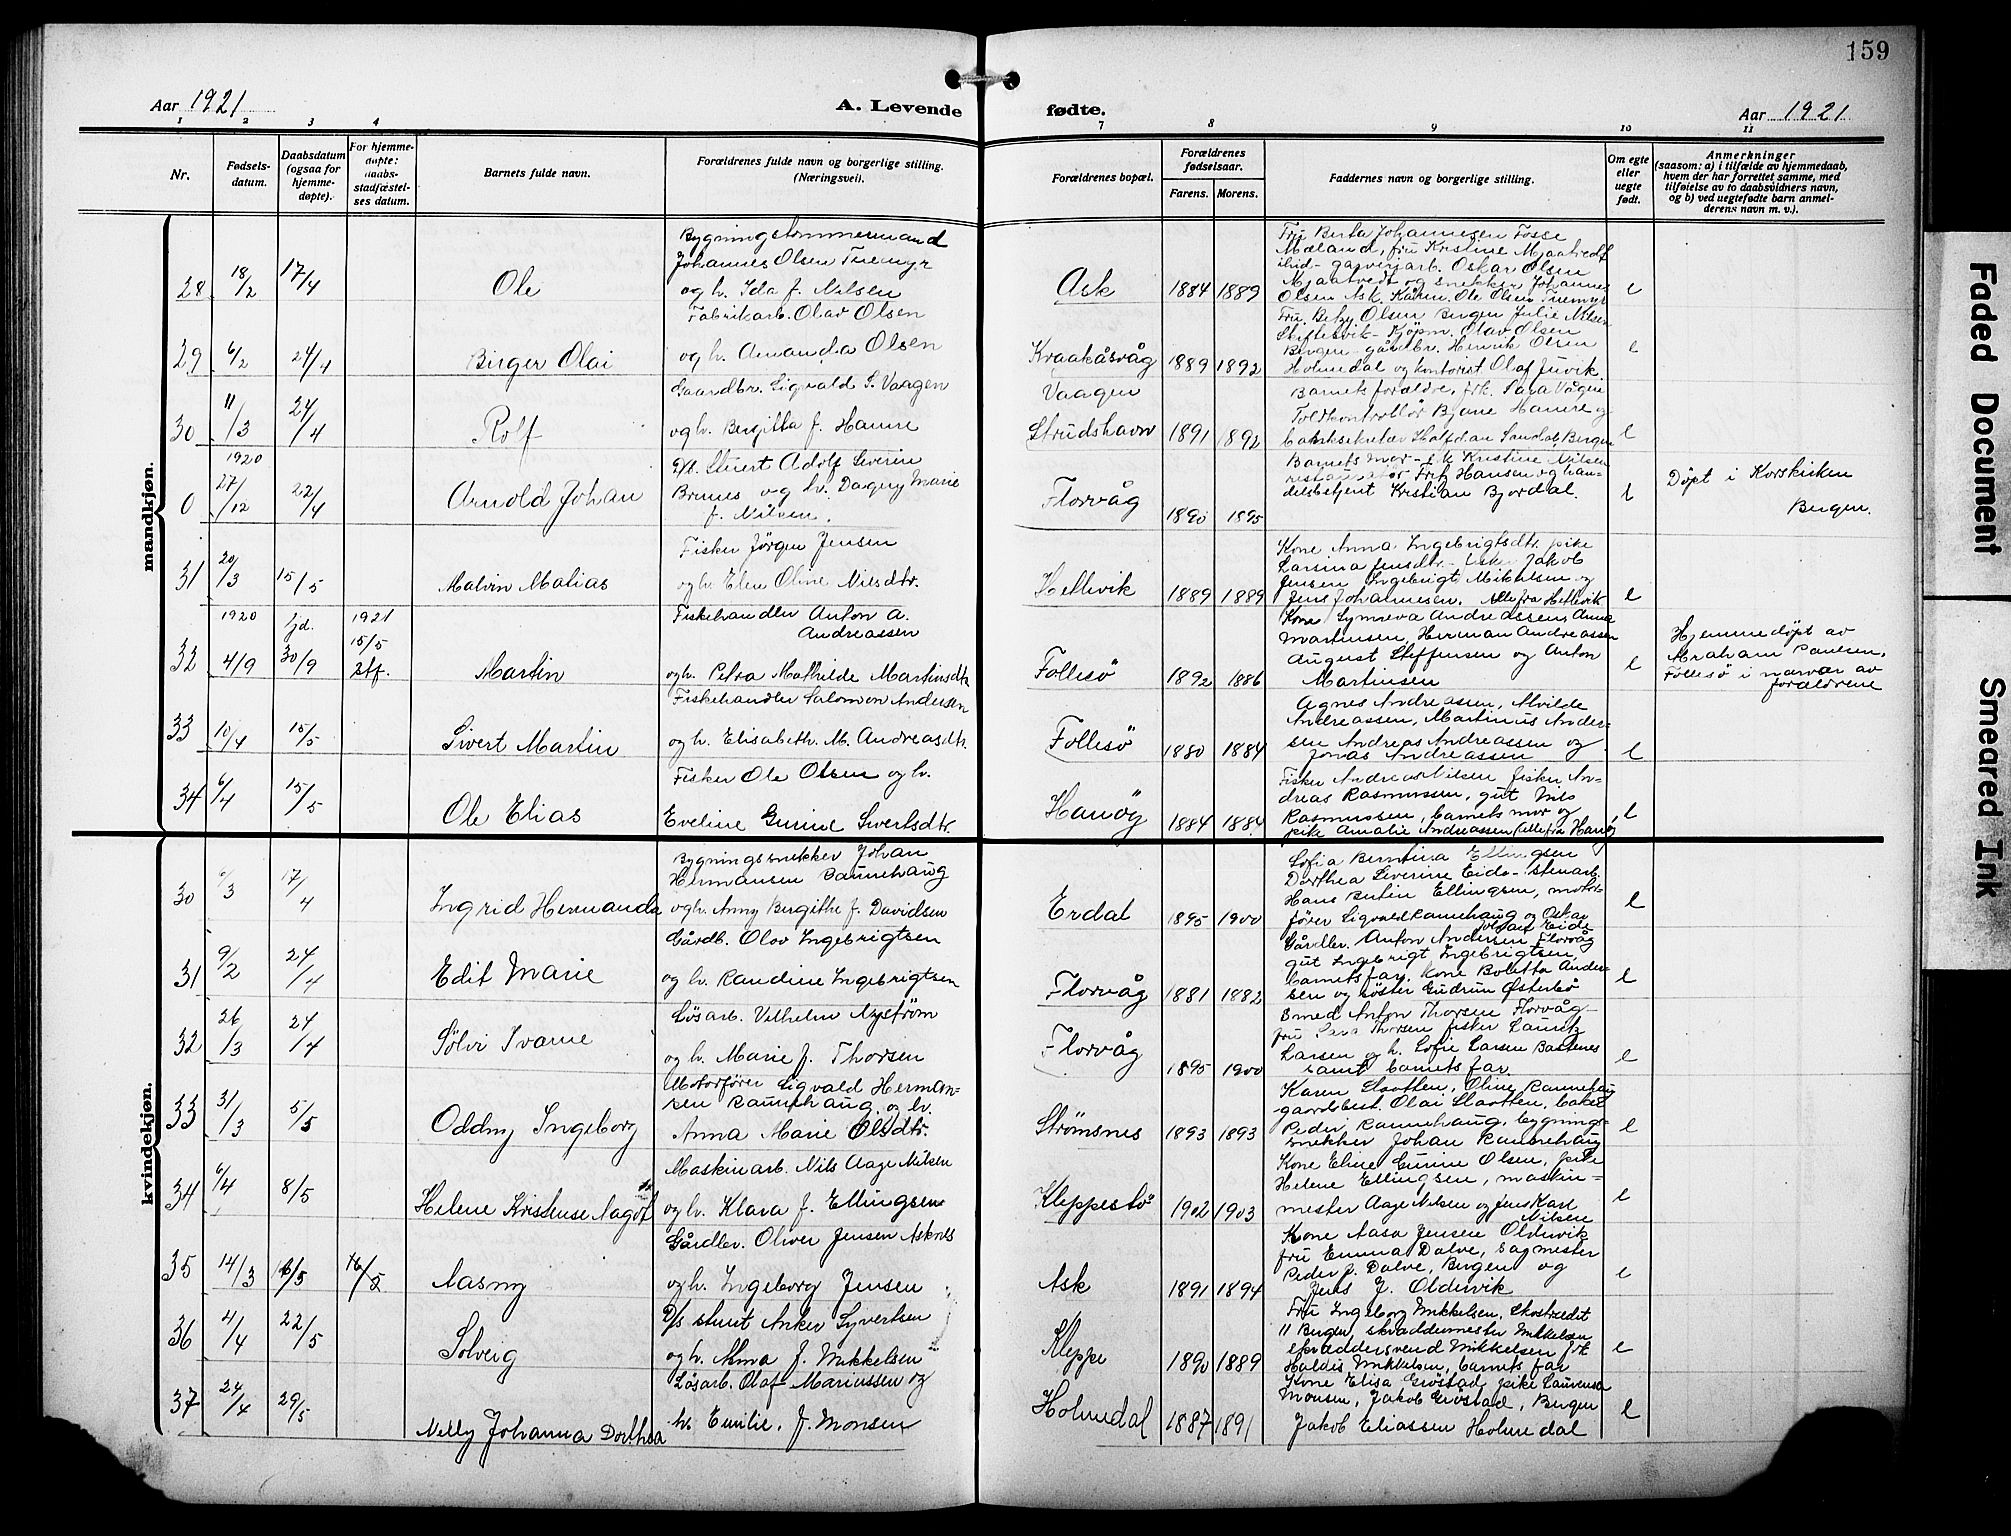 159
Aar 1921
A. Levende fødte.
Aar 1921
1 2 3 4 7 8 9 10 11
Nr.
Fødsels-datum.
Daabsdatum (ogsaa for hjemme-døpte).
For hjemme-døpte: daabs-stadfæstel-ses datum.
Barnets fulde navn.
Forældrenes fulde navn og borgerlige stilling. (Næringsvei).
Forældrenes bopæl.
Forældrenes fødselsaar.
Farens. Morens.
Faddernes navn og borgerlige stilling.
Om egte eller uegte født.
Anmerkninger
(saasom: a) i tilfælde av hjemmedaab,
hvem der har forrettet samme, med
tilføielse av to daabsvidners navn,
og b) ved uegtefødte barn anmel-
derens navn m. v.).
mandkjøn.
28 18/2 17/4 Ole
Bygningstømmermand
Johannes Olsen Tuemyr
og h. Ida f. Nilsen
Ask 1884 1889
Fru Berta Johannesen Fosse
Mæland, fru Kristine Mjaatvedt
ibid - garverjarb. Oskar Olsen
Mjaatvedt og snekker Johannes
Olsen Ask. Kårm. Ole Olsen Tuemyr
e
29 6/2 24/4 Birger Olai
Fabrikarb. Olav Olsen
og h. Amanda Olsen
Kraakåsvåg 1889 1892
Fru Betzy Olsen Bergen Julie Nilsen
- Kjøpm. Olav Olsen
Bergen gårdbr. Henrik Olsen
Holmedal og kontorist Olaf Juvik
e
30 11/3 24/4 Rolf
Gaardbr. Sigvald S. Vaagen
og h. Bergitta f. Hamre
Vaagen
Strudshavn 1891 1892
Barnets forældre, frk. Sara Vågen
Toldkontrollør Bjarne Hamre og
Halfdan Bergen
e
0 1920 27/12 22/4 Arnold Johan
D/S. Stuert Adolf Severin
Bruns og h. Dagny Marie
f. Nilsen.
Florvåg 1890 1895
Barnets mor - frk Kristine Nilsen
Fritz Hansen og han-
delsbetjent Kristian Bjordal.
e
Døpt i Korskirken
Bergen.
31 20/3 15/5 Malvin Matias
Fisker Jörgen Jensen
og h. Elen Oline Nilsdtr.
Hellevik 1889 1889
Kone Anna Ingebrigtsdtr. pike
Larsina Jensdtr. - fisker Jakob
Jensen Ingebrigt Mikalsen og
Jens Johannesen. Alle fra Hellevik
e
32 1920 4/9 hjd. 30/9 1921 15/5 stf. Martin
Fiskehandler Anton A.
Andreassen
og h. Petra Mathilde Martinsdtr
Follesö 1892 1886
Kone Synneva Andreassen, Anna
Martinsen, Herman Andreassen
August Steffensen og Anton
Martinsen
e
Hjemmedöpt av
Abraham Paulsen,
Follesö i nærvær av
forældrene
33 10/4 15/5 Sivert Martin
Fiskehandler Salomon Andersen
og h. Elisabeth. M. Andreasdtr.
Follesö 1880 1884
Agnes Andreassen, Alvilde
Andreassen, Martinus Ander-
sen Andreas Andreassen og
Jonas Andreassen
e
34 6/4 15/5 Ole Elias
Fisker Ole Olsen og h.
Eveline Gurine Sivertsdtr.
Hanöy 1884 1884
Fisker Andreas Nilsen fisker An-
dreas Rasmussen, gut Nils
Rasmussen, barnets mor og
pike Amalie Andreassen (alle fra Hanöy)
e
kvindekjøn.
30 6/3 17/4 Ingrid Hermanda
Bygningssnekker Johan
Hermansen Rannehaug
og h. Anny Bergithe f. Davidsen
Erdal 1895 1900
Sofia Berntina Ellingsen
Dorthea Severine Eide - stenarb.
Hans Bertin Ellingsen, motor-
fører Sigvald Rannehaug og Oskar
Johan Eide
e
31 9/2 24/4 Edit Marie
Gårdb. Olav Ingebrigtsen
og h. Randine Ingebrigtsen
Florvåg 1881 1882
Gårdbr. Anton Andersen Florvåg
gut Ingebrigt Ingebrigtsen,
barnets far, kone Boletta Ander-
sen og søster Gudrun Österbö
e
32 26/3 24/4 Sölvi Ivarne
Løsarb. Vilhelm Nyström
og h. Marie f. Thorsen
Florvåg 1895 1900
Smed Anton Thorsen Florvåg -
fru Thorsen fisker Lauritz
Larsen og h. Sofie Larsen
samt barnets far.
e
33 31/3 5/5 Oddny Ingeborg
Motorfører Sigvald Herman-
sen Rannehaug. og h.
Anna Marie Olsdtr.
Strømsnes 1893 1893
Karen Slaatten, Oline Rannehaug
gaardbest. Olai Slaatten, baker
Peder Rannehaug, bygnings-
snekker Johan Rannehaug
e
34 6/4 8/5 Helene Kristense Nagot
Maskinarb. Nils Aage Nilsen
og h. Klara f. Ellingsen
Kleppestö 1902 1903
Kone Eline Gurine Olsen, pike
Helene Ellingsen, maskin-
mester Aage Nilsen og Jens Karl
Nilsen
e
35 14/3 16/5 16/5 Aasny
Gårdbr. Oliver Jensen Asknes
og h. Ingeborg Jensen
Ask 1891 1894
Kone Aasa Jensen Oldervik
fru Emma Dalve, sagmester
Peder J. Dalve, Bergen og
Jens J. Oldervik
e
36 4/4 22/5 Solveig
D/s stuert Anker Syvertsen
og h. Alma f. Mikkelsen
Kleppe 1890 1889
Fru Ingeborg Mikkelsen, Skostrædet
11 Bergen, skræddermester Mikkelsen
skræddersvend Mikkelsen frk
Haldis Mikkelsen, barnets far
e
37 24/4 29/5 Nelly Johanna Dorthea
Løsarb. Olaf Mariussen og
h. Emilie, f. Monsen
Holmedal 1887 1891
Kone Elisa Gröstad, pike Laurensa
Monsen, Jakob Gröstad, Bergen
Jakob Eliassen Holmedal
e
Faded Document
Smeared Ink